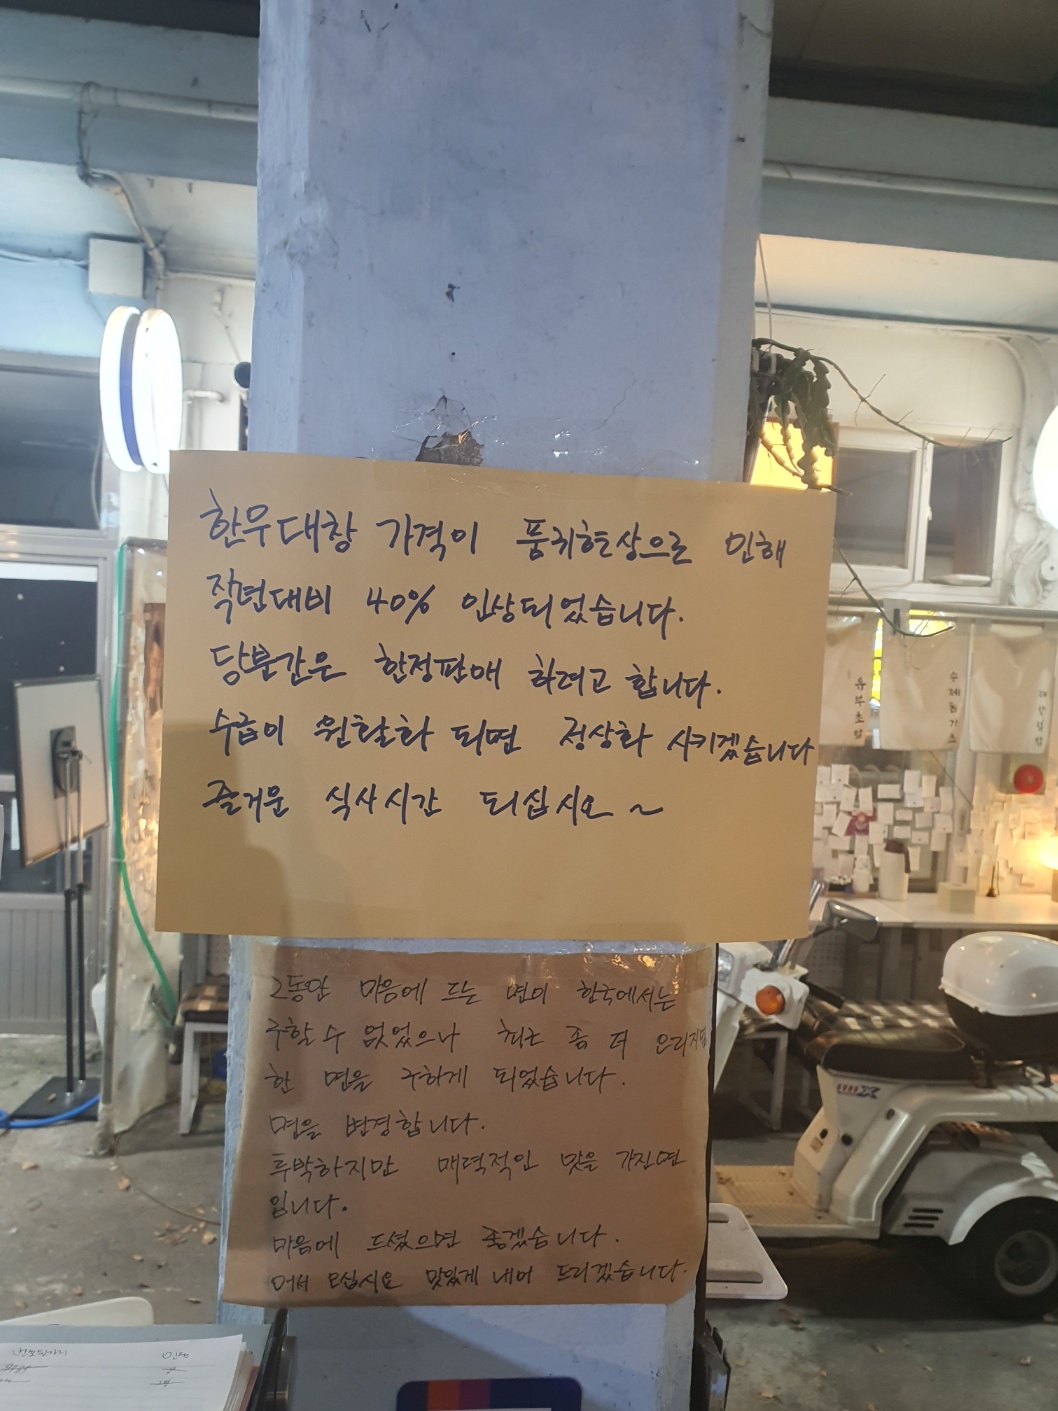 한우대창 가격이 품귀현상으로 인해
작년대비 40% 인상되었습니다.
당분간은 한정판매 하려고 합니다.
수급이 원활화 되면 정상화 시키겠습니다
즐거운 식사시간 되십시오~
그동안 마음에 드는 면이 한국에서는
구할 수 없었으나 최근 좀 더 오리지널
한 면을 구하게 되었습니다.
면을 변경합니다.
투박하지만 매력적인 맛을 가진면
입니다.
마음에 드셨으면 좋겠습니다.
어서 오십시오 맛있게 내어 드리겠습니다.
유부초밥
수제돈가스